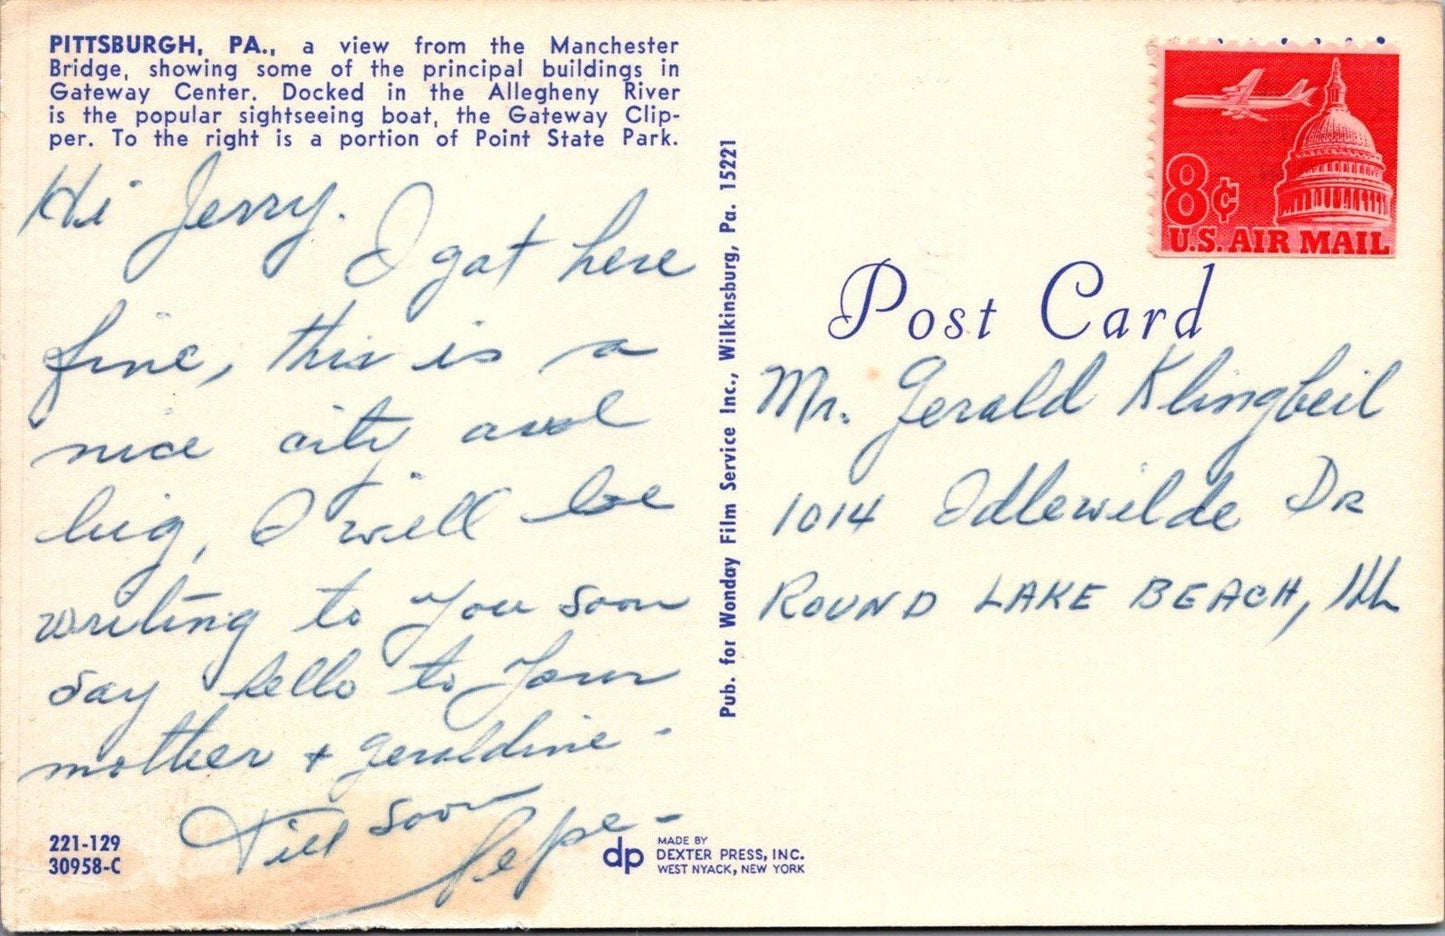 PITTSBURGH, PA., a view from the Manchester
Bridge, showing some of the principal buildings in
Gateway Center. Docked in the Allegheny River
is the popular sightseeing boat, the Gateway Clip-
per. To the right is a portion of Point State Park.
Hi Jerry.
I got here
fine, this is a
nice city and
big, I will be
writing to you soon
say hello to your
mother + Geraldine -
Till soon
Pepe -
221-129
30958-C
dp
MADE BY
DEXTER PRESS, INC.
WEST NYACK, NEW YORK
Pub. for Wonday Film Service Inc., Wilkinsburg, Pa. 15221
8¢
U.S. AIR MAIL
Post Card
Mr. Gerald Klingbeil
1014 Idlewilde DR
ROUND LAKE BEACH, ILL